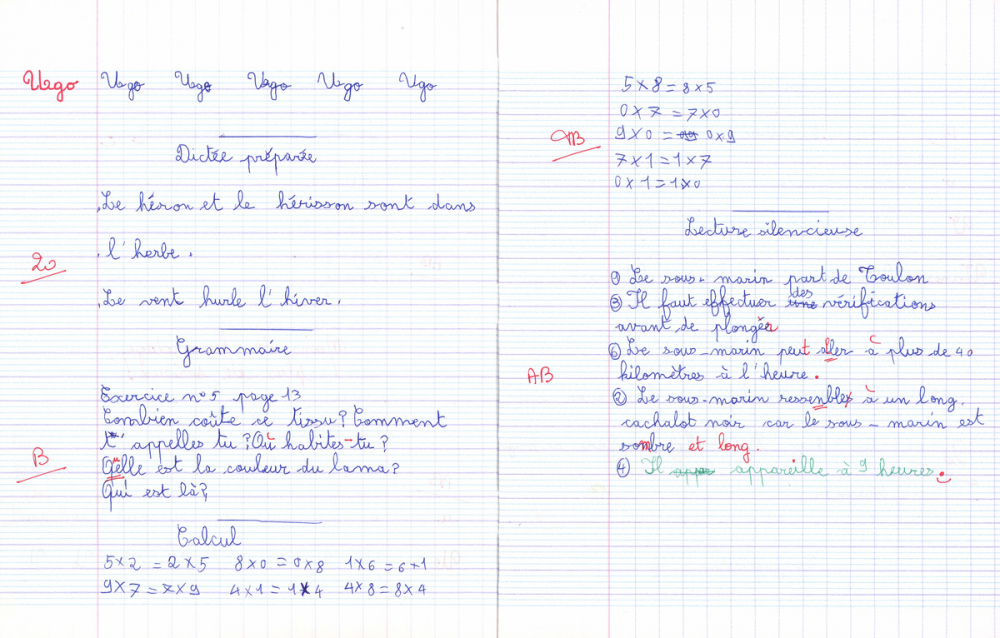 Ugo Ugo Ugo Ugo Ugo Ugo
Dictée préparée
Le héron et le hérisson sont dans
l'herbe.
20
Le vent hurle l'hiver.
Grammaire
Exercice n°5 page 13
Combien coûte ce tissu? Comment
t'appelles tu? Où habites-tu?
B
Quelle est la couleur du lama?
Qui est là?
Calcul
5×2 = 2×5 8×0 = 0×8 1×6 = 6×1
9×7 = 7×9 4×1 = 1×4 4×8 = 8×4
5×8 = 8×5
0×7 = 7×0
AB
9×0 = 0×9
7×1 = 1×7
0×1 = 1×0
Lecture silencieuse
① Le sous-marin part de Toulon
③ Il faut effectuer des vérifications
avant de plonger
⑥ Le sous-marin peut aller à plus de 40
AB
kilomètres à l'heure.
② Le sous-marin ressemble à un long
cachalot noir car le sous-marin est
sombre et long.
④ Il appareille à 9 heures.